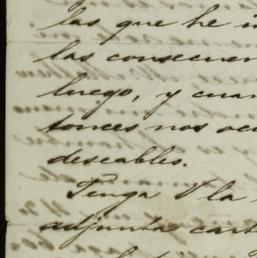 las que he i
las consecuen
luego, y cuan
tonces nos ocu
deseables.
Tenga V la
adjunta cart